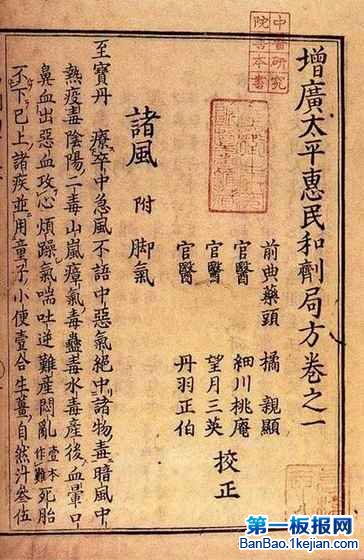 增廣太平惠民和劑局方卷之一
前典藥頭 橘 親顯
官醫 細川桃庵
官醫 望月三英
官醫 丹羽正伯
校正
諸風 附 脚氣
至寶丹 療卒中急風不語中惡氣絕中諸物毒暗風中
熱疫毒陰陽二毒山嵐瘴氣毒蠱毒水毒產後血暈口
鼻血出惡血攻心煩躁氣喘吐逆難產悶亂壹本作難死胎
不下巳上諸疾並用童子小便壹合生薑自然汁叁伍
中醫研究
院善本書
第一板报网
BanBao.1kejian.com